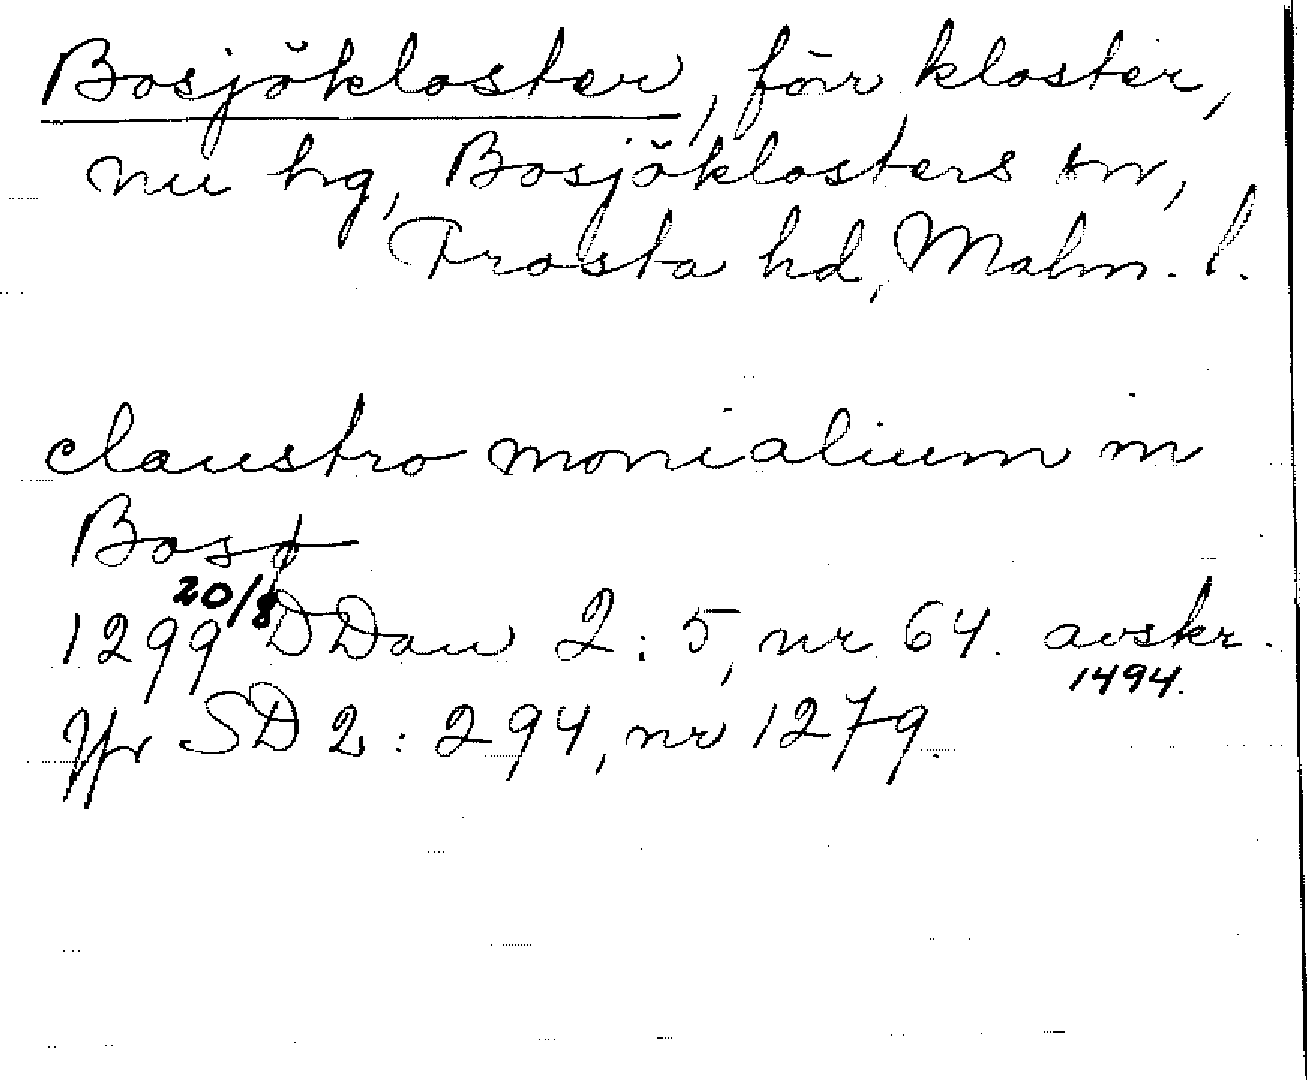 Bosjökloster, förr kloster,
nu hg, Bosjöklosters sn,
Frosta hd, Malm. l.
claustro monialium in
Bosø
1299 20/8 DDan 2:5, nr 64. avskr.
1494.
Jfr SD 2:294, nr 1279.